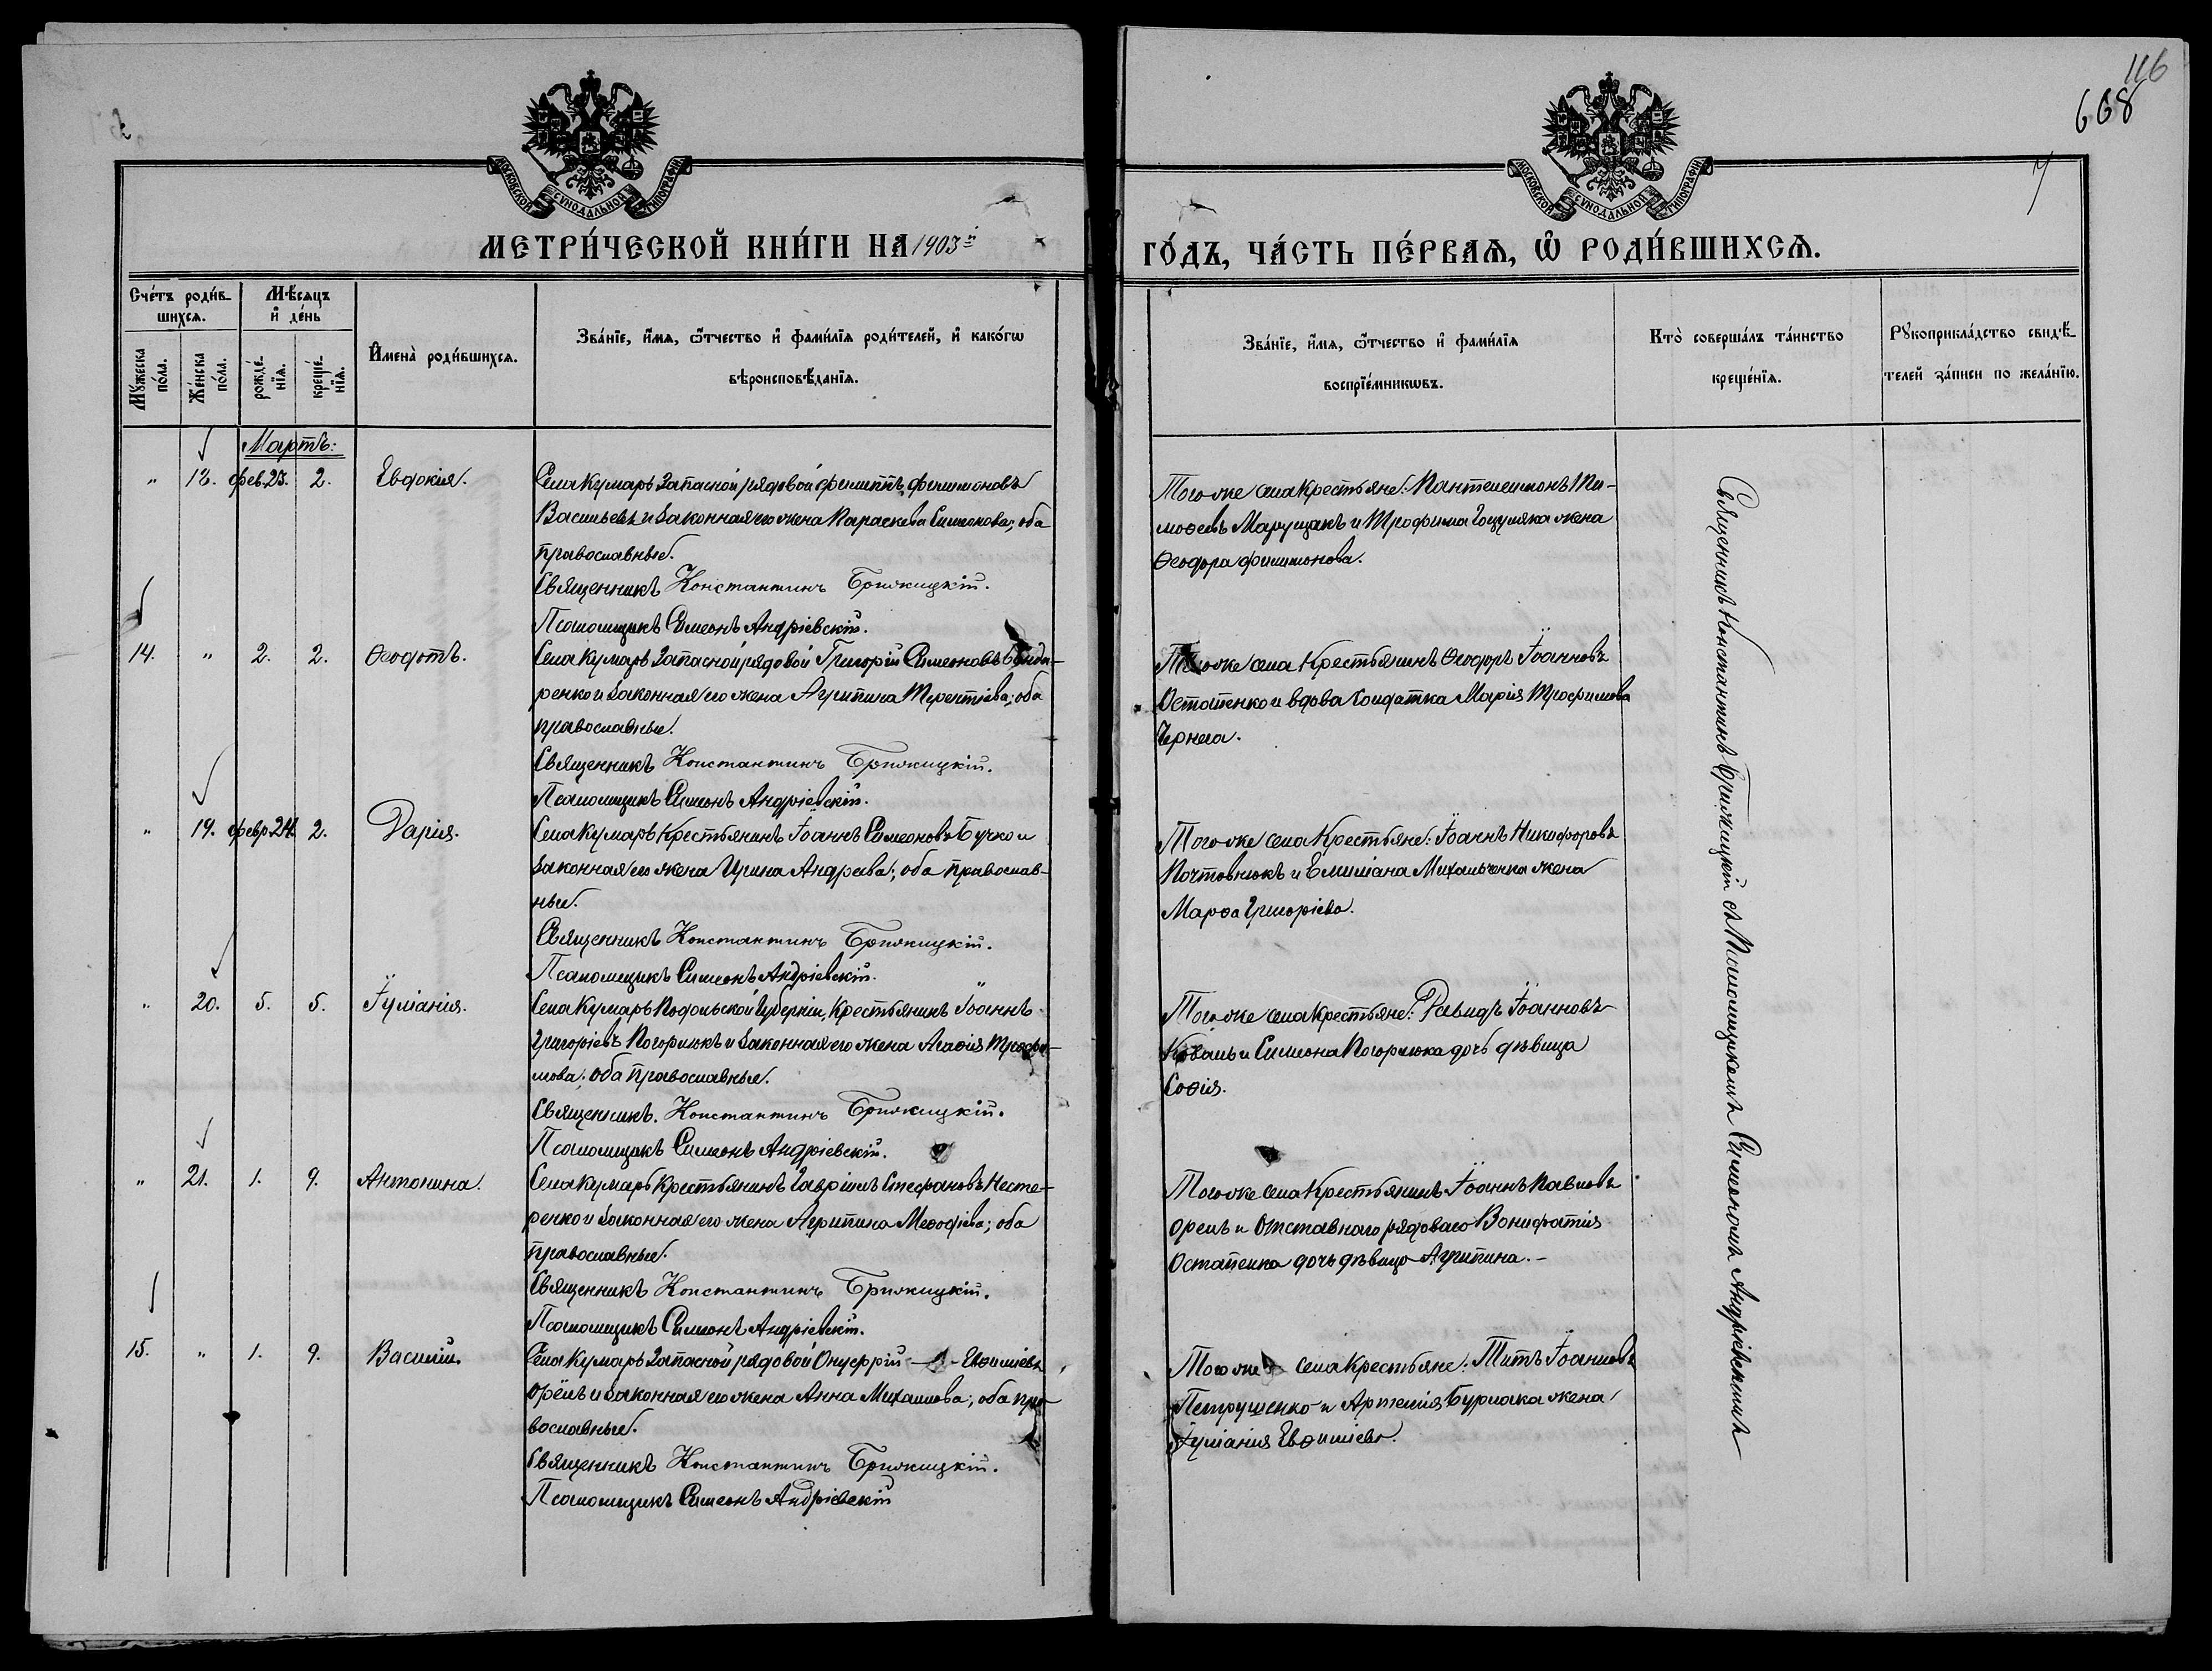 116
668
7
МОСКОВСКОЙ СѴНОДАЛЬНОЙ ТИПОГРАФІИ
МОСКОВСКОЙ СѴНОДАЛЬНОЙ ТИПОГРАФІИ
МЕТРИ́ЧЕСКОЙ КНИ́ГИ НА 1903й
ГО́ДЪ, ЧА́СТЬ ПЕ́РВАѦ, Ѿ РОДИ́ВШИХСѦ.
Сче́тъ роди́в-
шихсѧ.
Мꙋ́жеска по́ла.
Же́нска по́ла.
Мѣ́сѧцъ
и҆ де́нь
рожде́-нїѧ.
креще́-нїѧ.
И҆мена̀ роди́вшихсѧ.
Зва́нїе, и҆́мѧ, ѻ҆́тчество и҆ фами́лїѧ роди́телей, и҆ како́гѡ
вѣроисповѣ́данїѧ.
Зва́нїе, и҆́мѧ, ѻ҆́тчество и҆ фами́лїѧ
воспрїе́мникѡвъ.
Кто̀ соверша́лъ та́инство
креще́нїѧ.
Рꙋкоприкла́дство свидѣ́-
телей за́писи по жела́нїю.
Мартъ:
" 18. фев.23. 2. Евдокія.
Села Кумаръ Запасной рядовой Филиппъ Филимоновъ
Васильевъ и законная его жена Параскева Симонова; оба
православные.
Священникъ Константинъ Брижицкій.
Псаломщикъ Симеонъ Андріевскій.
Того же села Крестьяне: Пантелеимонъ Ти-
моѳеевъ Марущакъ и Трофима Гоцуляка жена
Ѳеодора Филимонова.
14. " 2. 2. Ѳеодотъ.
Села Кумаръ Запасной рядовой Григорій Симеоновъ Бонда-
ренко и законная его жена Агрипина Терентіева; оба
православные.
Священникъ Константинъ Брижицкій.
Псаломщикъ Симеонъ Андріевскій.
Того же села Крестьянинъ Ѳеодоръ Іоанновъ
Остапенко и вдова солдатка Марія Трофимова
Чернега.
" 19. февр.24. 2. Дарія.
Села Кумаръ Крестьянинъ Іоаннъ Симеоновъ Бучко и
законная его жена Ирина Андреева; оба православ-
ные.
Священникъ Константинъ Брижицкій.
Псаломщикъ Симеонъ Андріевскій.
Того же села Крестьяне: Іоаннъ Никифоровъ
Почтовнюкъ и Емиліана Михальченка жена
Марѳа Григоріева.
" 20. 5. 5. Іуліанія.
Села Кумаръ Подольской Губерніи, Крестьянинъ Іоаннъ
Григоріевъ Погорилюкъ и законная его жена Агаѳія Трофи-
мова; оба православные.
Священникъ. Константинъ Брижицкій.
Псаломщикъ Симеонъ Андріевскій.
Того же села Крестьяне: Давидъ Іоанновъ
Коваль и Симеона Погорилюка дочь дѣвица
Софія.
" 21. 1. 9. Антонина.
Села Кумаръ Крестьянинъ Гавріилъ Стефановъ Несте-
ренко и законная его жена Агрипина Меѳодіева; оба
православные.
Священникъ Константинъ Брижицкій.
Псаломщикъ Симеонъ Андріевскій.
Того же села Крестьянинъ Іоаннъ Павловъ
Орелъ и Отставнаго рядоваго Вонифатія
Остапенка дочь дѣвица Агрипина. –
15. " 1. 9. Василій.
Села Кумаръ Запасной рядовой Онуфрій – Евѳиміевъ
Орёлъ и законная его жена Анна Михаилова; оба пра-
вославные.
Священникъ Константинъ Брижицкій.
Псаломщикъ Симеонъ Андріевскій
Того же села Крестьяне: Титъ Іоанновъ
Петрушенко и Артемія Бурлака жена
Іуліанія Евѳиміева.
Священникъ Константинъ Брижицкій съ Псаломщикомъ Симеономъ Андріевскимъ